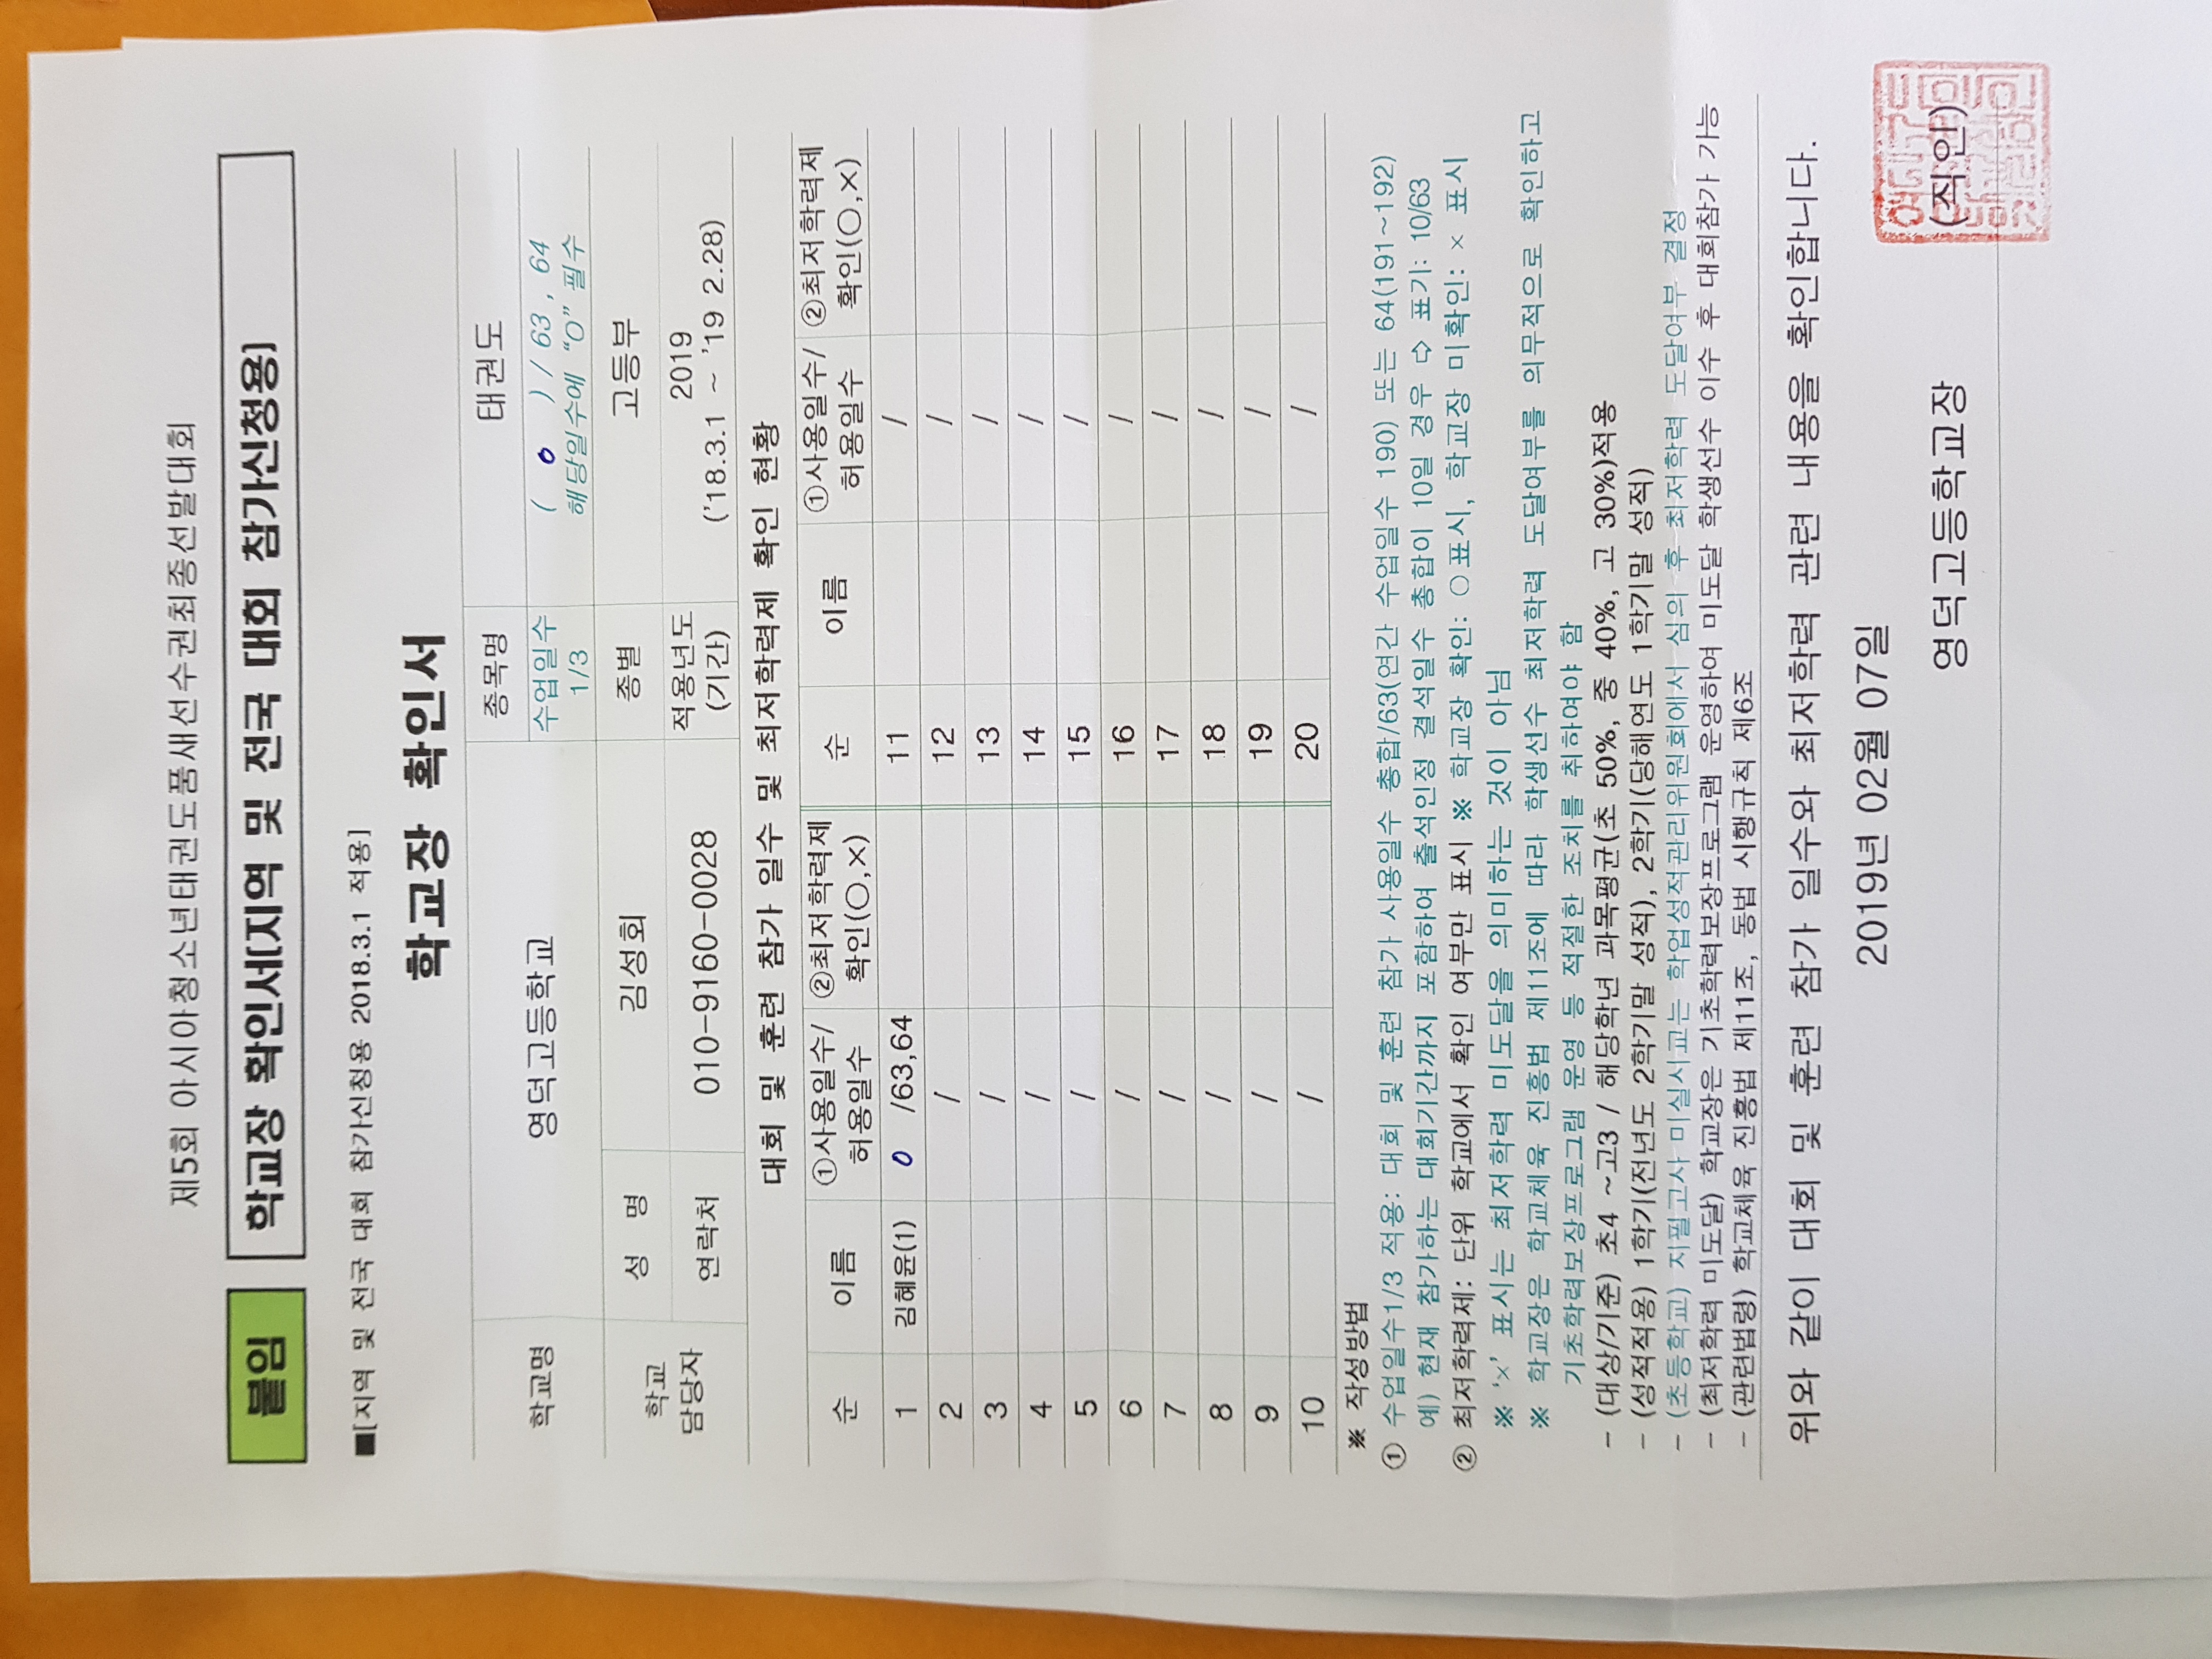 제5회 아시아청소년태권도품새선수권최종선발대회
붙임 학교장 확인서(지역 및 전국 대회 참가신청용)
■[지역 및 전국 대회 참가신청용 2018.3.1 적용]
학교장 확인서
학교명 영덕고등학교 종목명 태권도
수업일수 1/3 ( 0 ) / 63 , 64
해당일수에 "O" 필수
학교 담당자 성 명 김성회 종별 고등부
연락처 010-9160-0028 적용년도 (기간) 2019
('18.3.1 ~ '19 2.28)
대회 및 훈련 참가 일수 및 최저학력제 확인 현황
순 이름 ①사용일수/허용일수 ②최저학력제 확인(○,×) 순 이름 ①사용일수/허용일수 ②최저학력제 확인(○,×)
1 김혜윤(1) 0 /63,64 11 /
2 / 12 /
3 / 13 /
4 / 14 /
5 / 15 /
6 / 16 /
7 / 17 /
8 / 18 /
9 / 19 /
10 / 20 /
※ 작성방법
① 수업일수1/3 적용: 대회 및 훈련 참가 사용일수 총합/63(연간 수업일수 190) 또는 64(191~192)
예) 현재 참가하는 대회기간까지 포함하여 출석인정 결석일수 총합이 10일 경우 ⇨ 표기: 10/63
② 최저학력제: 단위 학교에서 확인 여부만 표시 ※ 학교장 확인: ○표시, 학교장 미확인: × 표시
※ '×' 표시는 최저학력 미도달을 의미하는 것이 아님
※ 학교장은 학교체육 진흥법 제11조에 따라 학생선수 최저학력 도달여부를 의무적으로 확인하고
기초학력보장프로그램 운영 등 적절한 조치를 취하여야 함
- (대상/기준) 초4 ~고3 / 해당학년 과목평균(초 50%, 중 40%, 고 30%)적용
- (성적적용) 1학기(전년도 2학기말 성적), 2학기(당해연도 1학기말 성적)
- (초등학교) 지필고사 미실시교는 학업성적관리위원회에서 심의 후 최저학력 도달여부 결정
- (최저학력 미도달) 학교장은 기초학력보장프로그램 운영하여 미도달 학생선수 이수 후 대회참가 가능
- (관련법령) 학교체육 진흥법 제11조, 동법 시행규칙 제6조
위와 같이 대회 및 훈련 참가 일수와 최저학력 관련 내용을 확인합니다.
2019년 02월 07일
영덕고등학교장 (직인)